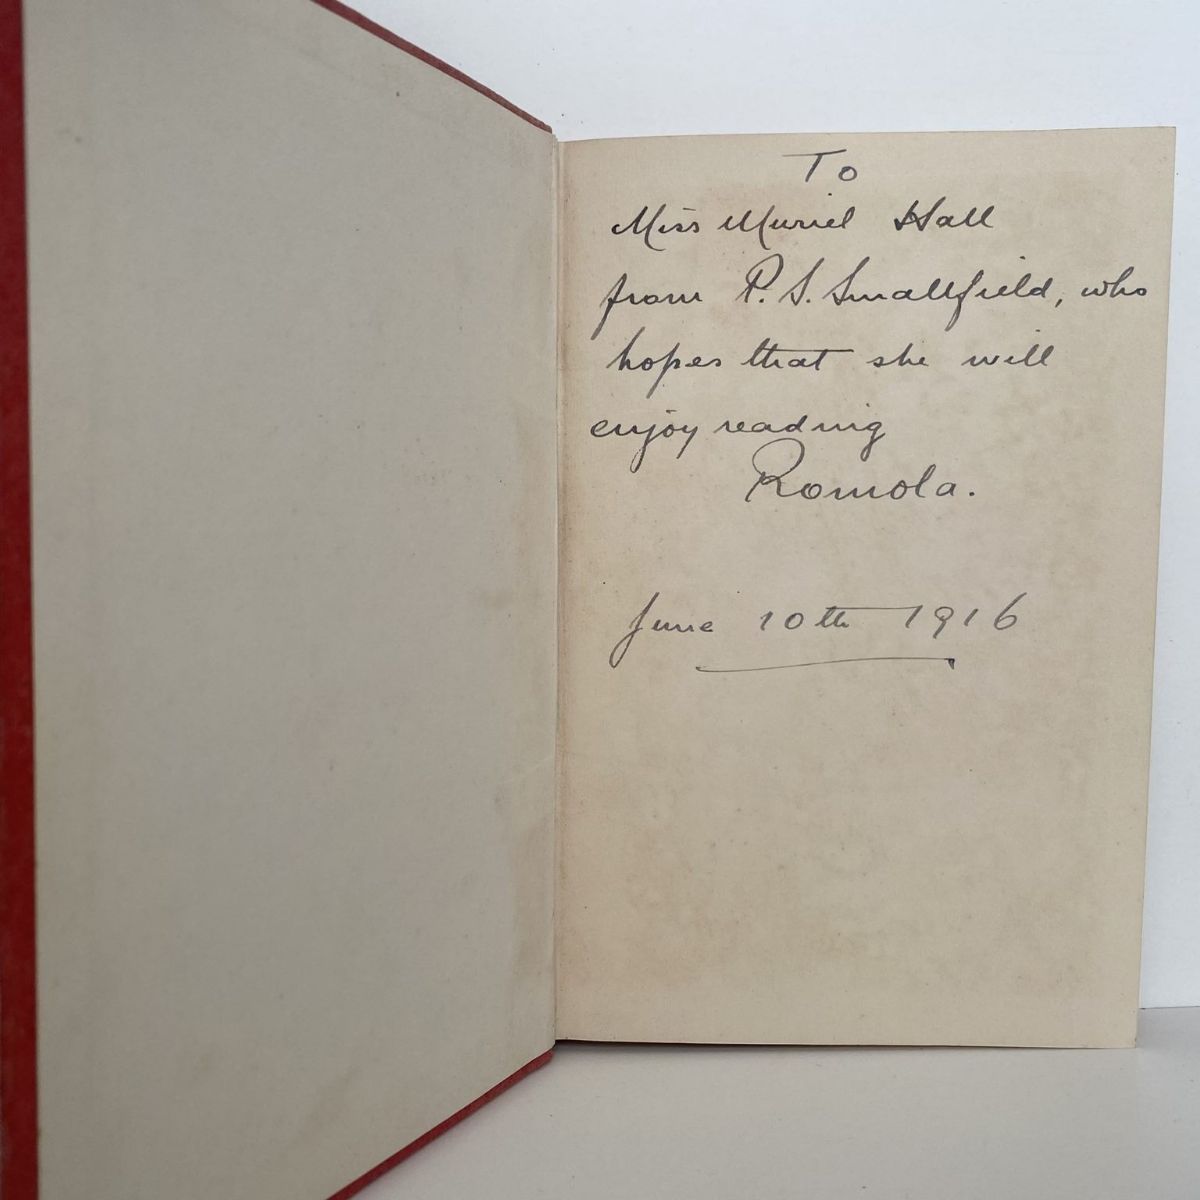 To
Miss Muriel Hall
from P. S. Smallfield, who
hopes that she will
enjoy reading
Romola.
June 10th 1916